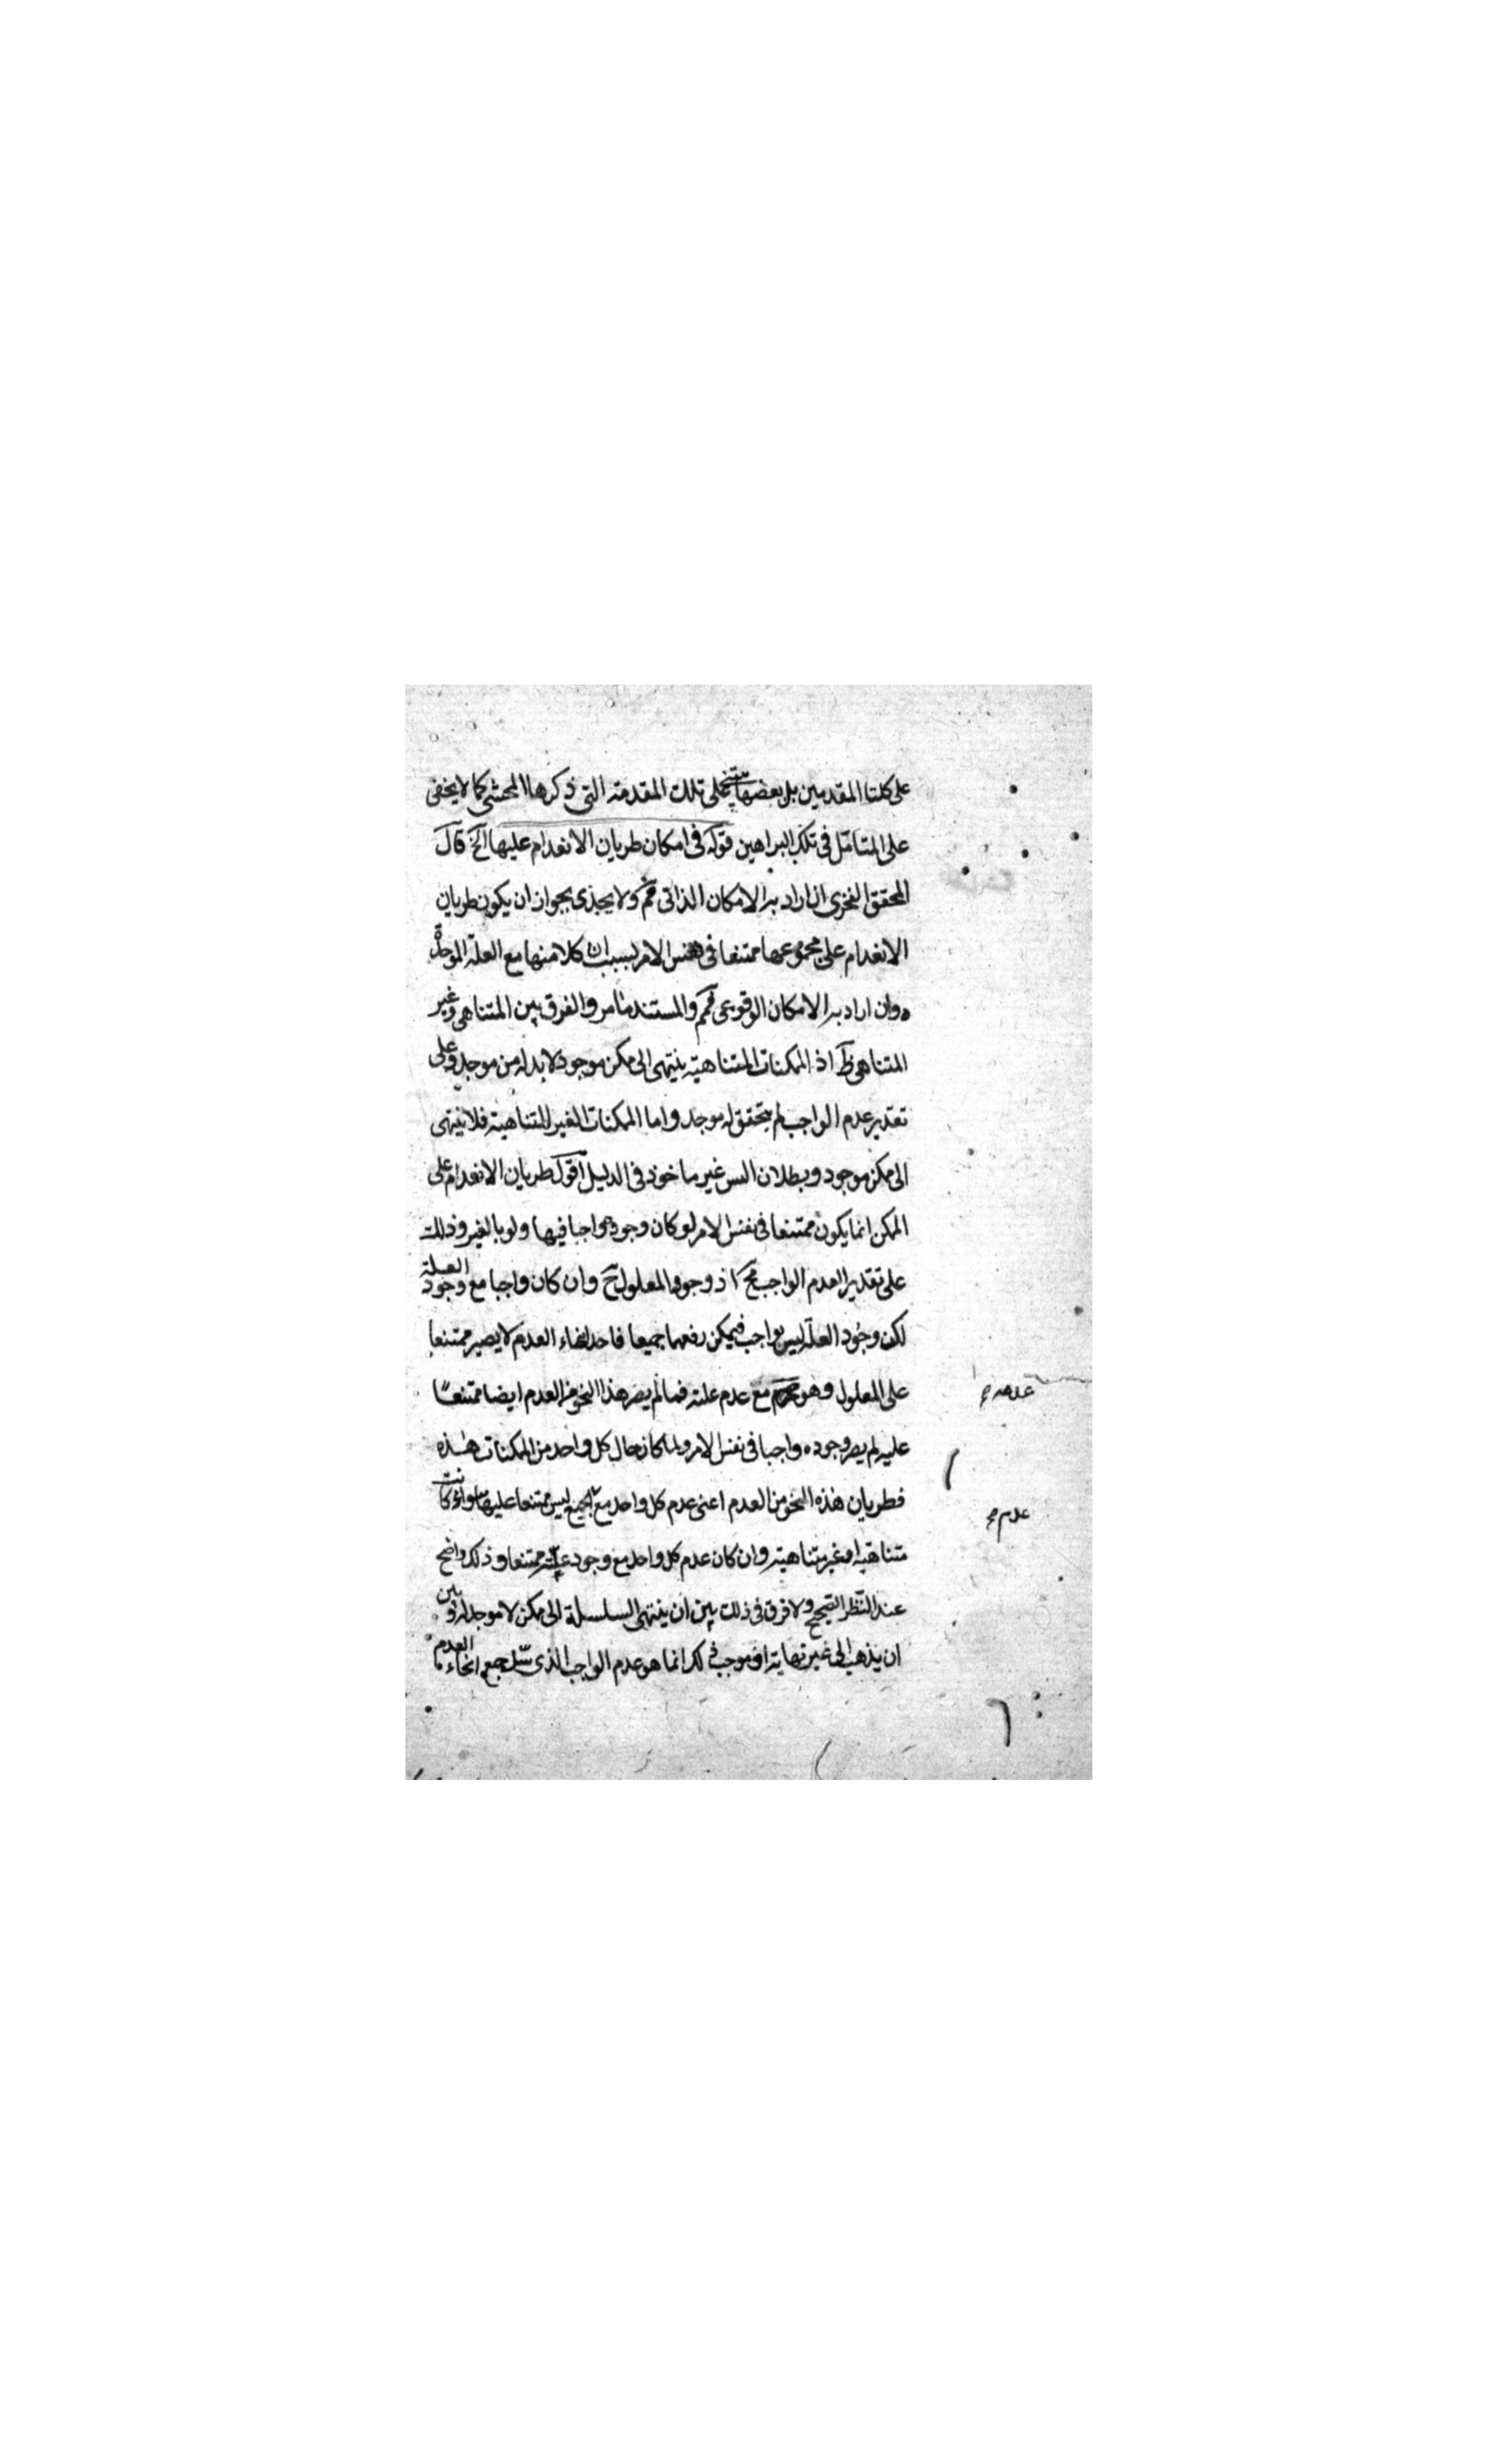 على كلتا المقدمين بل بعضها يبتنى على تلك المقدمة التى ذكرها المحشى كما لا يخفى
على المتامّل فى تلك البراهين قوله فى امكان طريان الانعدام عليها الخ قال
المحقق الفخرى ان اراد به الامكان الذاتى فمم ولا يجدى بجواز ان يكون طريان
الانعدام على مجموعها ممتنعا فى نفس الامر بسبب ان كلا منها مع العلة الموجدة
وان اراد به الامكان الوقوعى فمم والمستند ما مر والفرق بين المتناهى وغير
المتناهى ظ اذ الممكنات المتناهية ينتهى الى ممكن موجود لا بد له من موجد وعلى
تقدير عدم الواجب لم يتحقق له موجد واما الممكنات الغير المتناهية فلا ينتهى
الى ممكن موجود وبطلان التس غير ماخوذ فى الدليل اقول طريان الانعدام على
الممكن انما يكون ممتنعا فى نفس الامر لو كان وجوده واجبا فيها ولو بالغير وذلك
على تقدير العدم الواجب مح اذ وجود المعلول ح وان كان واجبا مع وجود العلة
لكن وجود العلة ليس بواجب فيمكن رفعهما جميعا فاحد انحاء العدم لا يصير ممتنعا
على المعلول وهو مع عدم علته فما لم يصر هذا النحو من العدم ايضا ممتنعا
عليه لم يصر وجوده واجبا فى نفس الامر ولما كان حال كل واحد من الممكنات هذه
فطريان هذه النحو من العدم اعنى عدم كل واحد مع الجميع ليس ممتنعا عليها سواء كانت
متناهية او غير متناهية وان كان عدم كل واحد مع وجود علته ممتنعا وذلك واضح
عند النظر الصحيح ولا فرق فى ذلك بين ان ينتهى السلسلة الى ممكن لا موجد له وبين
ان يذهب الى غير نهاية اذ موجب ذلك انما هو عدم الواجب الذى جميع انحاء العدم
عدمه
عدم